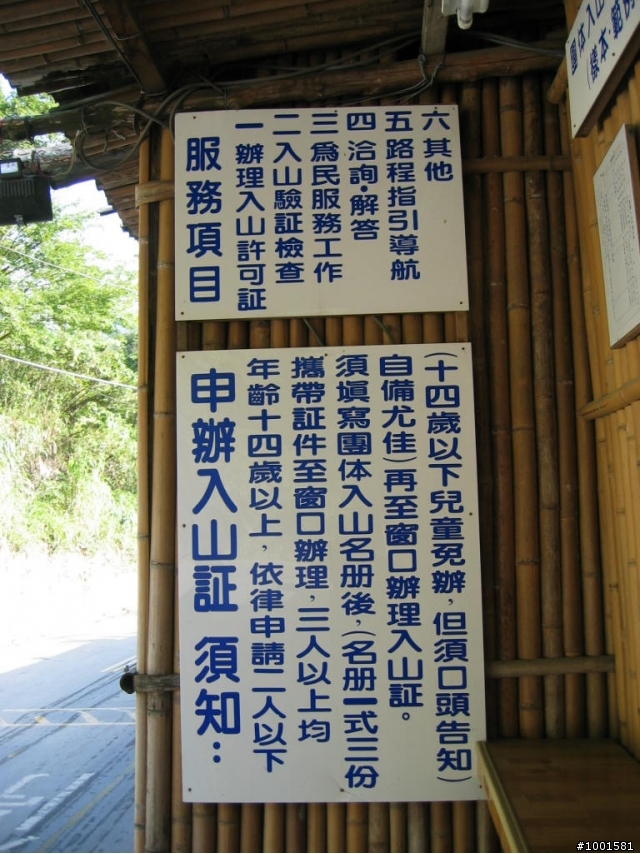 服務項目
一 辦理入山許可証
二 入山驗証檢查
三 爲民服務工作
四 洽詢·解答
五 路程指引導航
六 其他
申辦入山証 須知：
年齡十四歲以上，依律申請二人以下
攜帶証件至窗口辦理，三人以上均
須塡寫團体入山名册後，(名册一式三份
自備尤佳)再至窗口辦理入山証。
(十四歲以下兒童免辦，但須口頭告知)
團体入山
(樣本·範例
#1001581